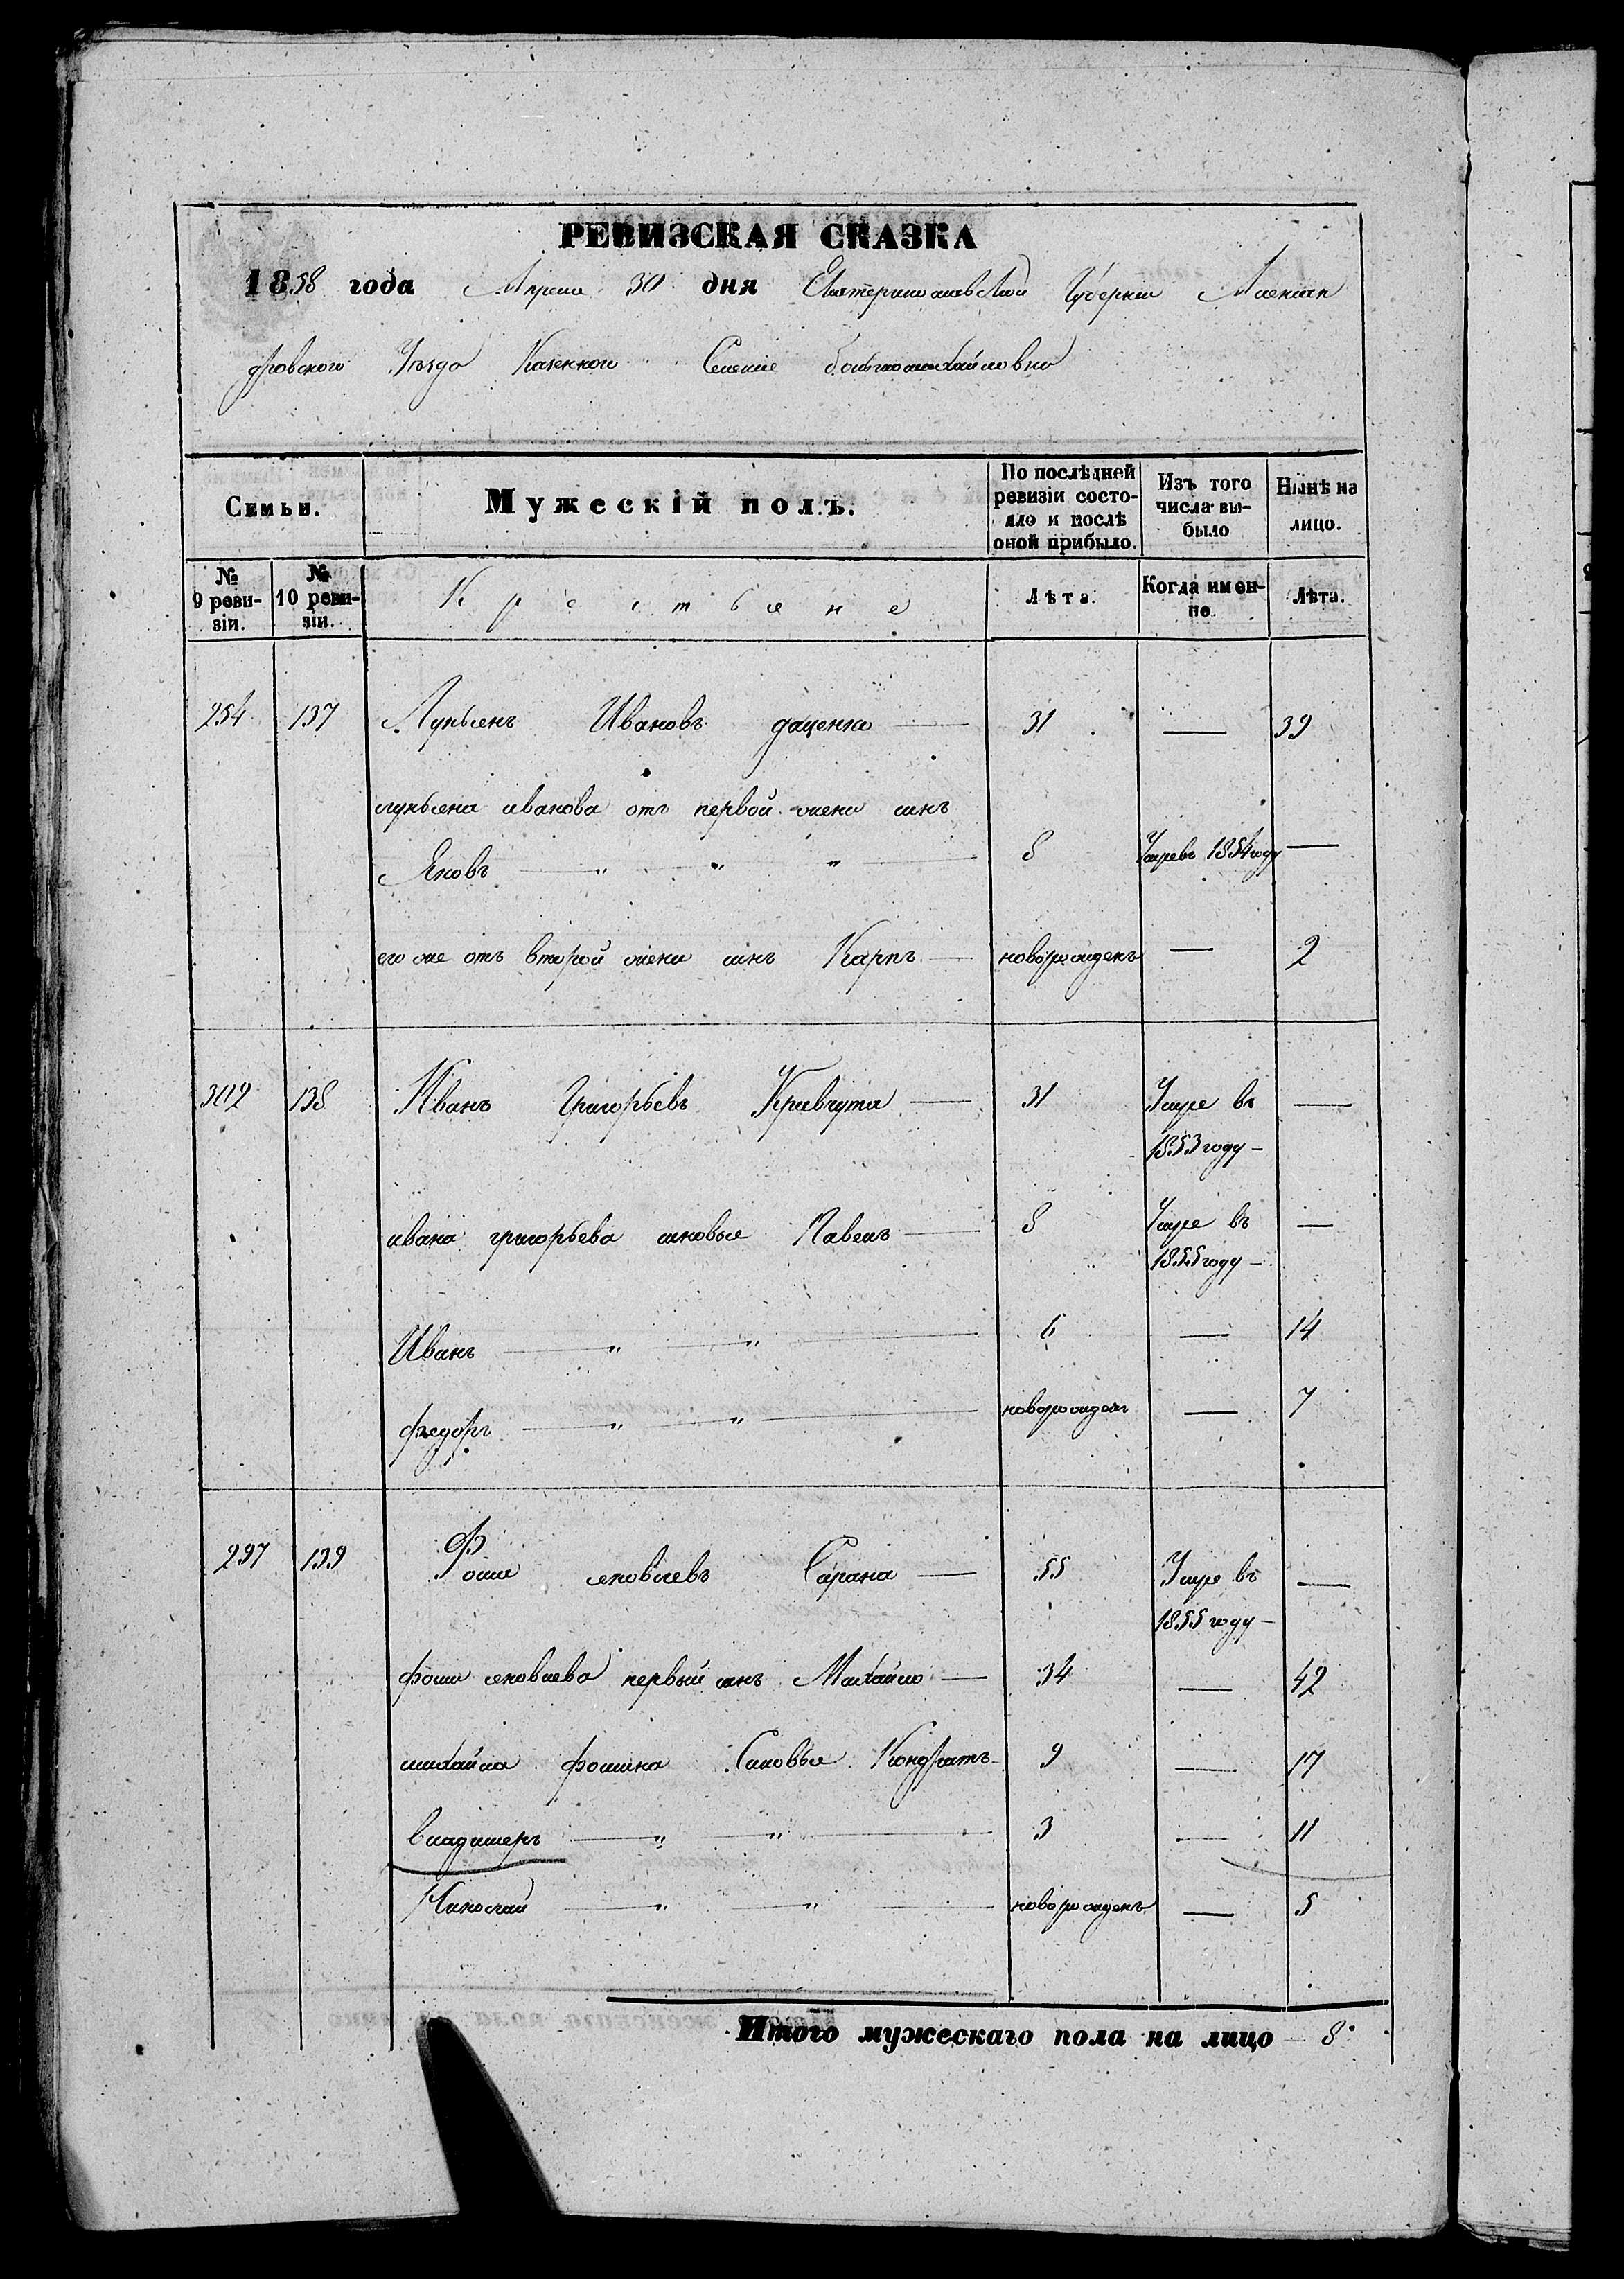 РЕВИЗСКАЯ СКАЗКА
1858 года Апреля 30 дня Екатеринославской Губернии Алексан
дровского Уезда Казенного Селение большомихайловки
Семьи. Мужескій полъ. По послѣдней ревизіи состояло и послѣ оной прибыло. Изъ того числа выбыло Нынѣ на лицо.
№ 9 ревизіи. № 10 ревизіи. Крестьяне Лѣта. Когда именно. Лѣта.
254 137 Лукьянъ Ивановъ даценко 31 — 39
лукьяна иванова отъ первой жени синъ
Яковъ — „ — „ „ — 8 Умревъ 1854 году —
его же отъ второй жени синъ Карпъ — новорожденъ — 2
302 138 Иванъ Григорьевъ Кравчута — 31 Умре въ —
1853 году —
ивана григорьева синовья Павелъ — 8 Умре въ —
1855 году —
Иванъ — „ — „ — 6 — 14
федоръ — „ — „ — новорожден — 7
297 139 Фома яковлевъ Сарана — 55 Умре въ —
1855 году —
фоми яковлева первый синъ Михайло — 34 — 42
михайла фомина Синовья Кондратъ — 9 — 17
владимеръ — „ — „ — 3 — 11
Николай — „ — „ — новорожденъ — 5
Итого мужескаго пола на лицо 8